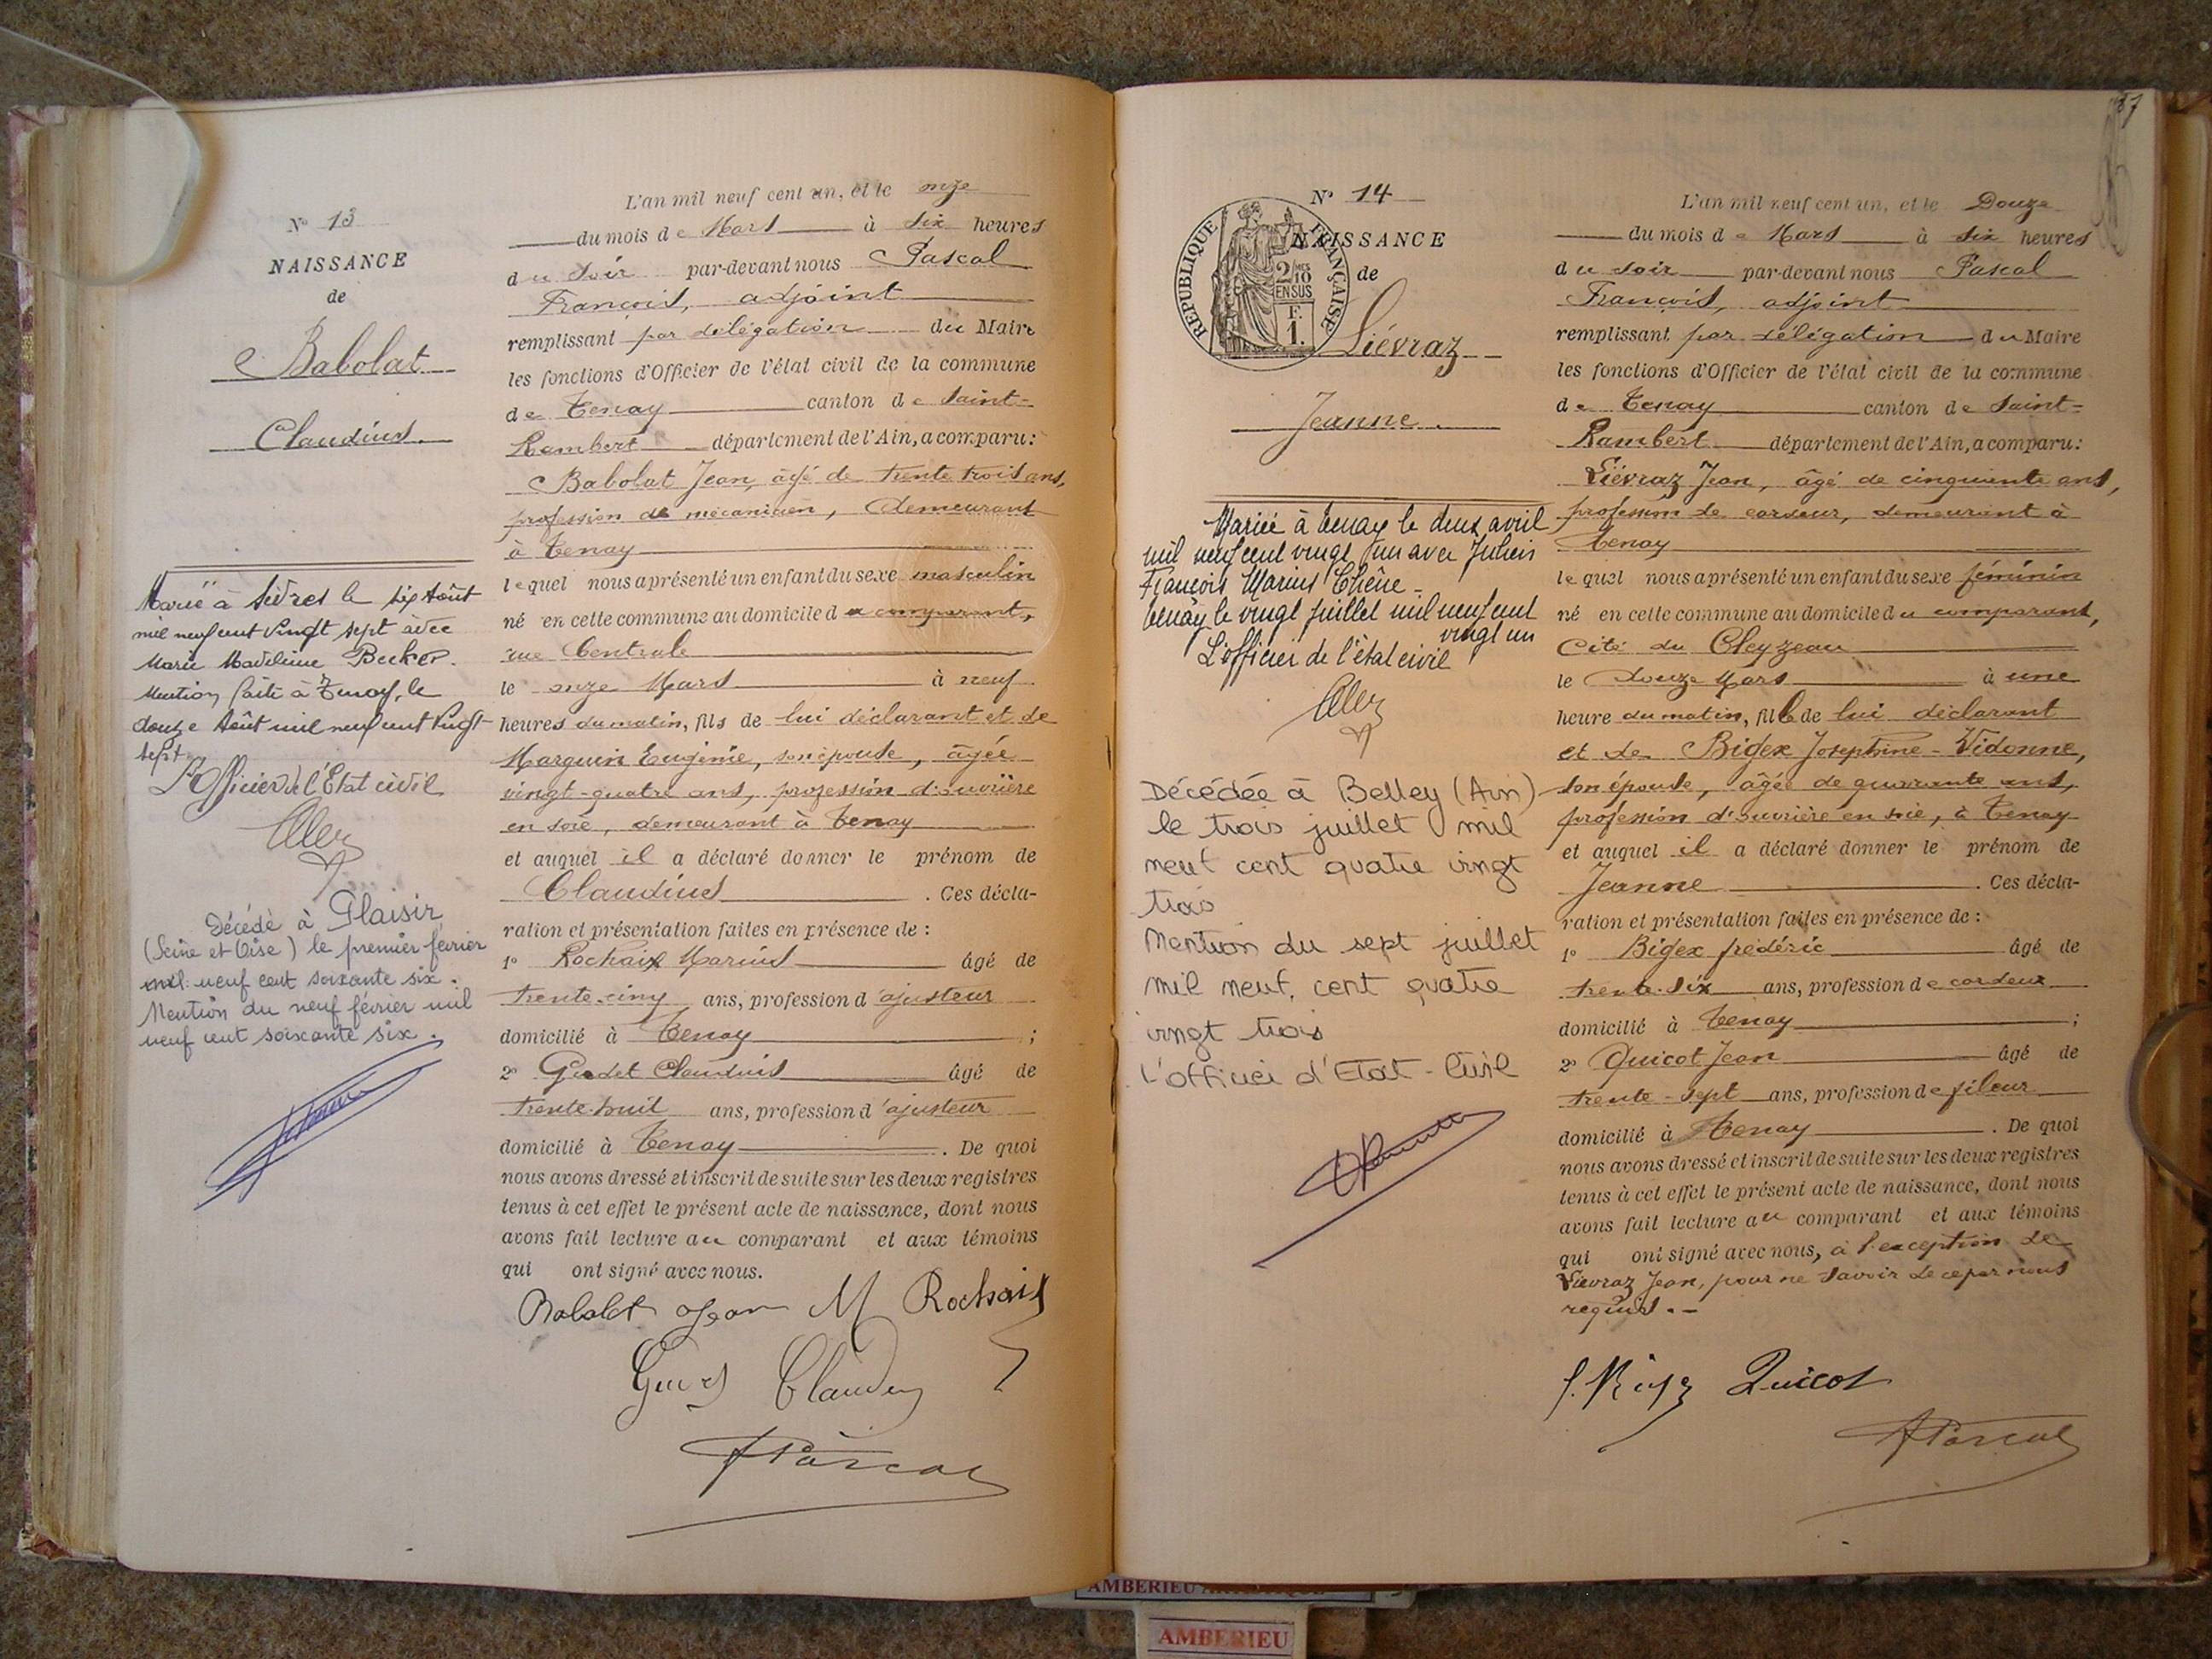 N° 13
NAISSANCE
de
Babolat
Claudius
Marié à Sèvres le six Août
mil neuf cent vingt sept avec
Marie Madeleine Becker.
Mention faite à Tenay, le
douze Août mil neuf cent vingt
sept
L'Officier de l'Etat civil
Décédé à Plaisir
(Seine et Oise) le premier février
mil neuf cent soixante six.
Mention du neuf février mil
neuf cent soixante six.
L'an mil neuf cent un, et le onze
du mois de Mars à six heures
du soir par-devant nous Pascal
François, adjoint
remplissant par délégation du Maire
les fonctions d'Officier de l'état civil de la commune
de Tenay canton de Saint-
Rambert département de l'Ain, a comparu:
Babolat Jean, âgé de trente trois ans,
profession de mécanicien, demeurant
à Tenay
lequel nous a présenté un enfant du sexe masculin
né en cette commune au domicile du comparant,
rue Centrale
le onze Mars à neuf
heures du matin, fils de lui déclarant et de
Marguin Eugénie, son épouse, âgée
vingt-quatre ans, profession d'ouvrière
en soie, demeurant à Tenay
et auquel il a déclaré donner le prénom de
Claudius. Ces décla-
ration et présentation faites en présence de :
1° Rochaix Marius âgé de
trente-cinq ans, profession d'ajusteur
domicilié à Tenay ;
2° Claudius âgé de
trente-huit ans, profession d'ajusteur
domicilié à Tenay. De quoi
nous avons dressé et inscrit de suite sur les deux registres
tenus à cet effet le présent acte de naissance, dont nous
avons fait lecture au comparant et aux témoins
qui ont signé avec nous.
Babolat Jean M Rochaix
APascal
87
N° 14
NAISSANCE
de
REPUBLIQUE FRANÇAISE
2/10 MES
EN SUS
F.
1.
Liévraz
Jeanne
Mariée à Tenay le deux avril
mil neuf cent vingt un avec Julien
François Marius Chêne -
Tenay le vingt juillet mil neuf cent
vingt un
L'officier de l'état civil
Décédée à Belley (Ain)
le trois juillet mil
neuf cent quatre vingt
trois
Mention du sept juillet
mil neuf cent quatre
vingt trois
L'officier d'Etat-Civil
L'an mil neuf cent un, et le Douze
du mois de Mars à six heures
du soir par-devant nous Pascal
François, adjoint
remplissant par délégation du Maire
les fonctions d'Officier de l'état civil de la commune
de Tenay canton de Saint-
Rambert département de l'Ain, a comparu:
Liévraz Jean, âgé de cinquante ans,
profession de cardeur, demeurant à
Tenay
lequel nous a présenté un enfant du sexe féminin
né en cette commune au domicile du comparant,
Cité du Cleyzeau
le Douze Mars à une
heure du matin, fille de lui déclarant
et de Bigex Josephine-Vidonne,
son épouse, âgée de quarante ans,
profession d'ouvrière en soie, à Tenay
et auquel il a déclaré donner le prénom de
Jeanne. Ces décla-
ration et présentation faites en présence de :
1° Bigex frédéric âgé de
trente-six ans, profession de cardeur
domicilié à Tenay ;
2° Quicot Jean âgé de
trente-sept ans, profession de fileur
domicilié à Tenay. De quoi
nous avons dressé et inscrit de suite sur les deux registres
tenus à cet effet le présent acte de naissance, dont nous
avons fait lecture au comparant et aux témoins
qui ont signé avec nous, à l'exception de
Liévraz Jean, pour ne savoir de ce par nous
requis. -
Quicot
APascal
AMBERIEU
AMBERIEU